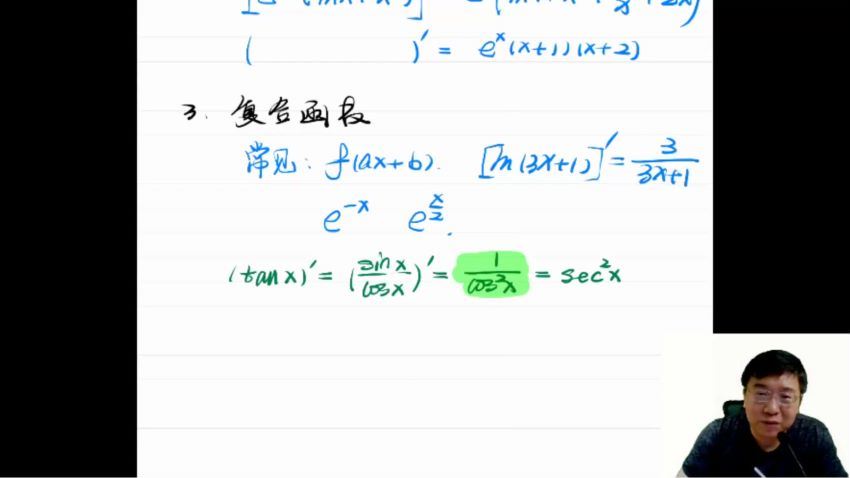 ( )' = eˣ(x+1)(x+2)
3. 复合函数
常见: f(ax+b). [ln(3x+1)]' = 3/(3x+1)
e⁻ˣ e^(x/2).
(tanx)' = (sinx/cosx)' = 1/cos²x = sec²x